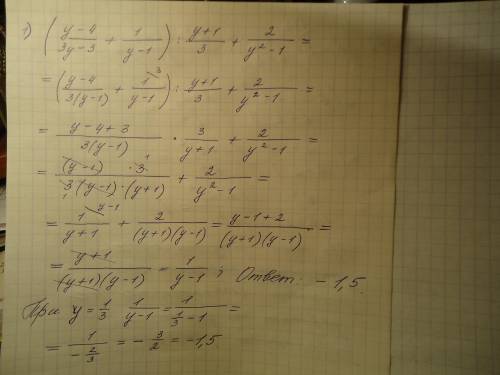 1) ( (y-4)/(3y-3) + 1/(y-1) ) : (y+1)/3 + 2/(y²-1) =
= ( (y-4)/(3(y-1)) + 1\3/(y-1) ) : (y+1)/3 + 2/(y²-1) =
= (y-4+3)/(3(y-1)) · 3/(y+1) + 2/(y²-1) =
= ((y-1) · 3)/(3(y-1)·(y+1)) + 2/(y²-1) =
= 1\y-1/(y+1) + 2/((y+1)(y-1)) = (y-1+2)/((y+1)(y-1)) =
= (y+1)/((y+1)(y-1)) = 1/(y-1) ; Ответ: -1,5.
При y = 1/3 1/(y-1) = 1/(1/3 - 1) =
= 1/(-2/3) = -3/2 = -1,5